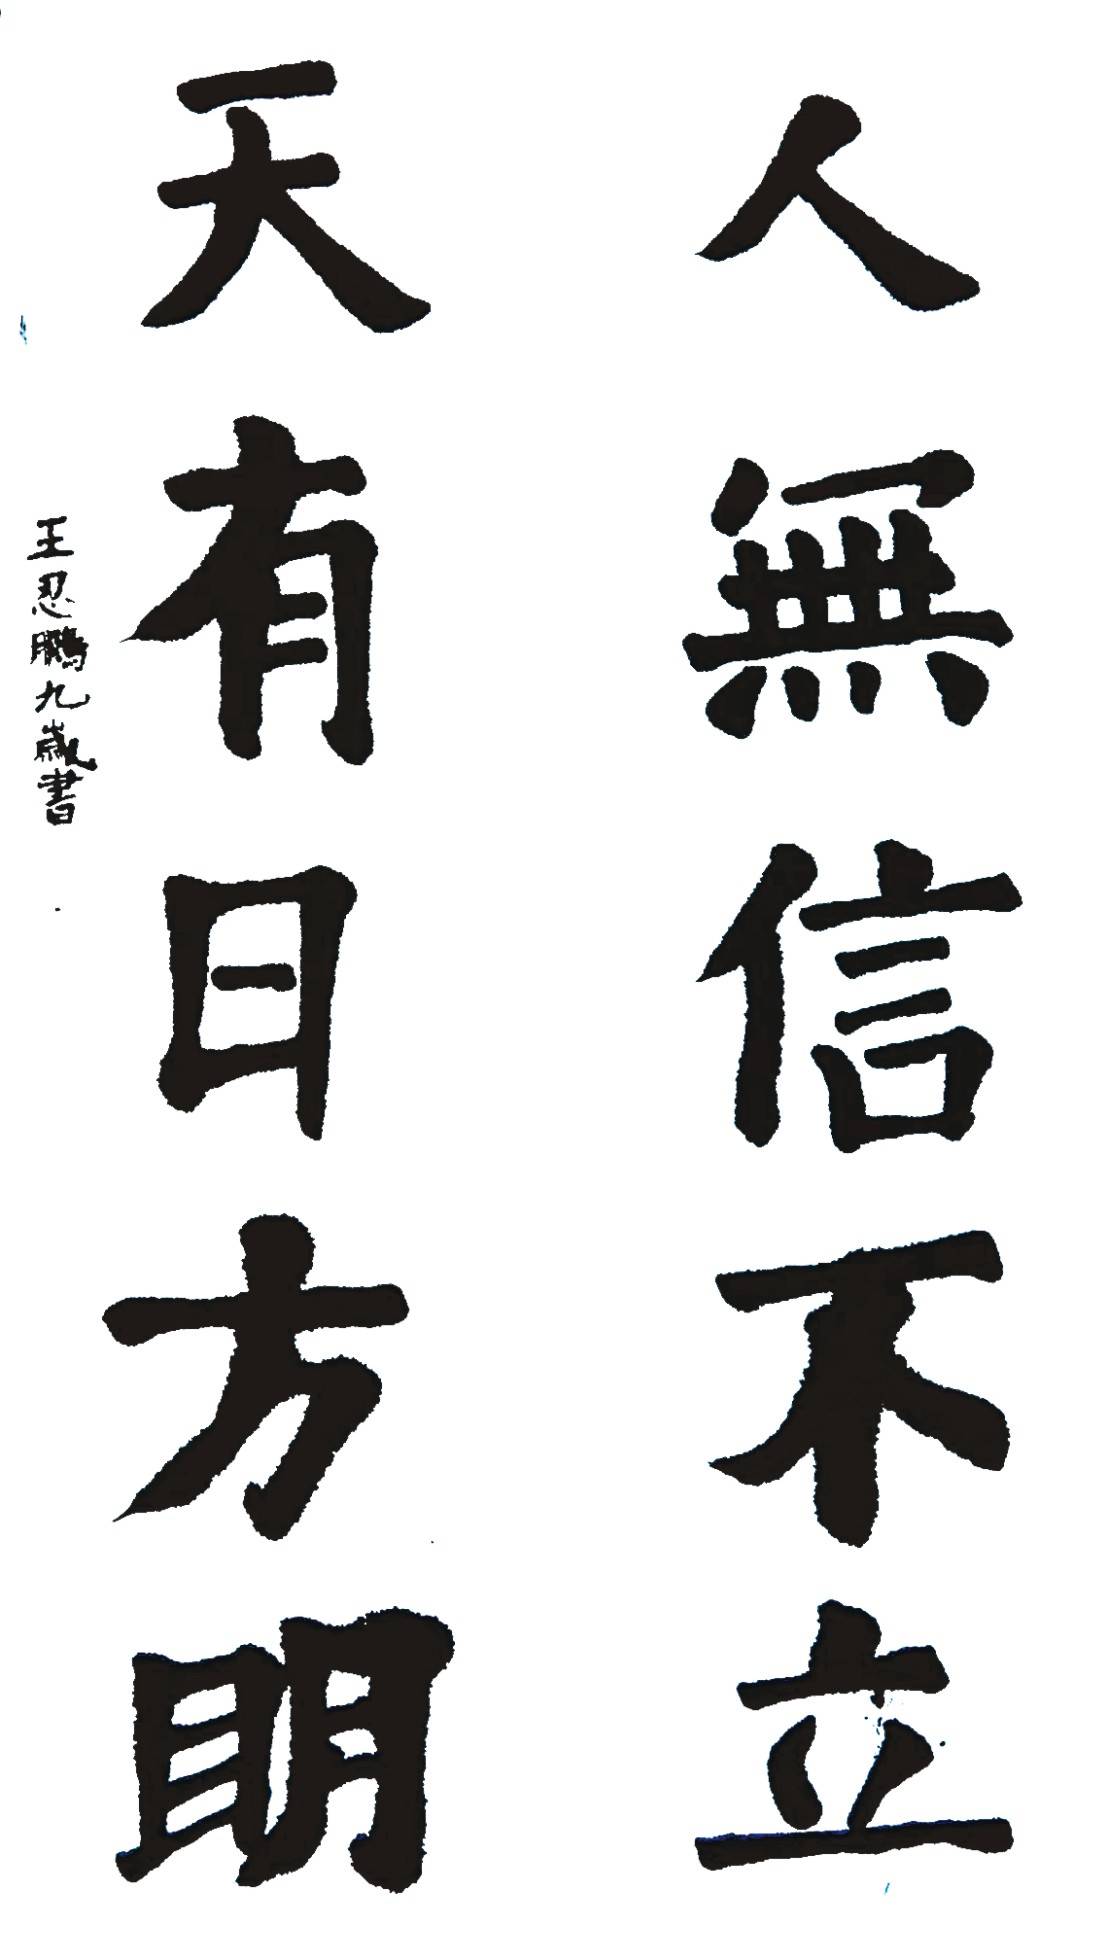 人無信不立
天有日方明
王忍鵬九歲書